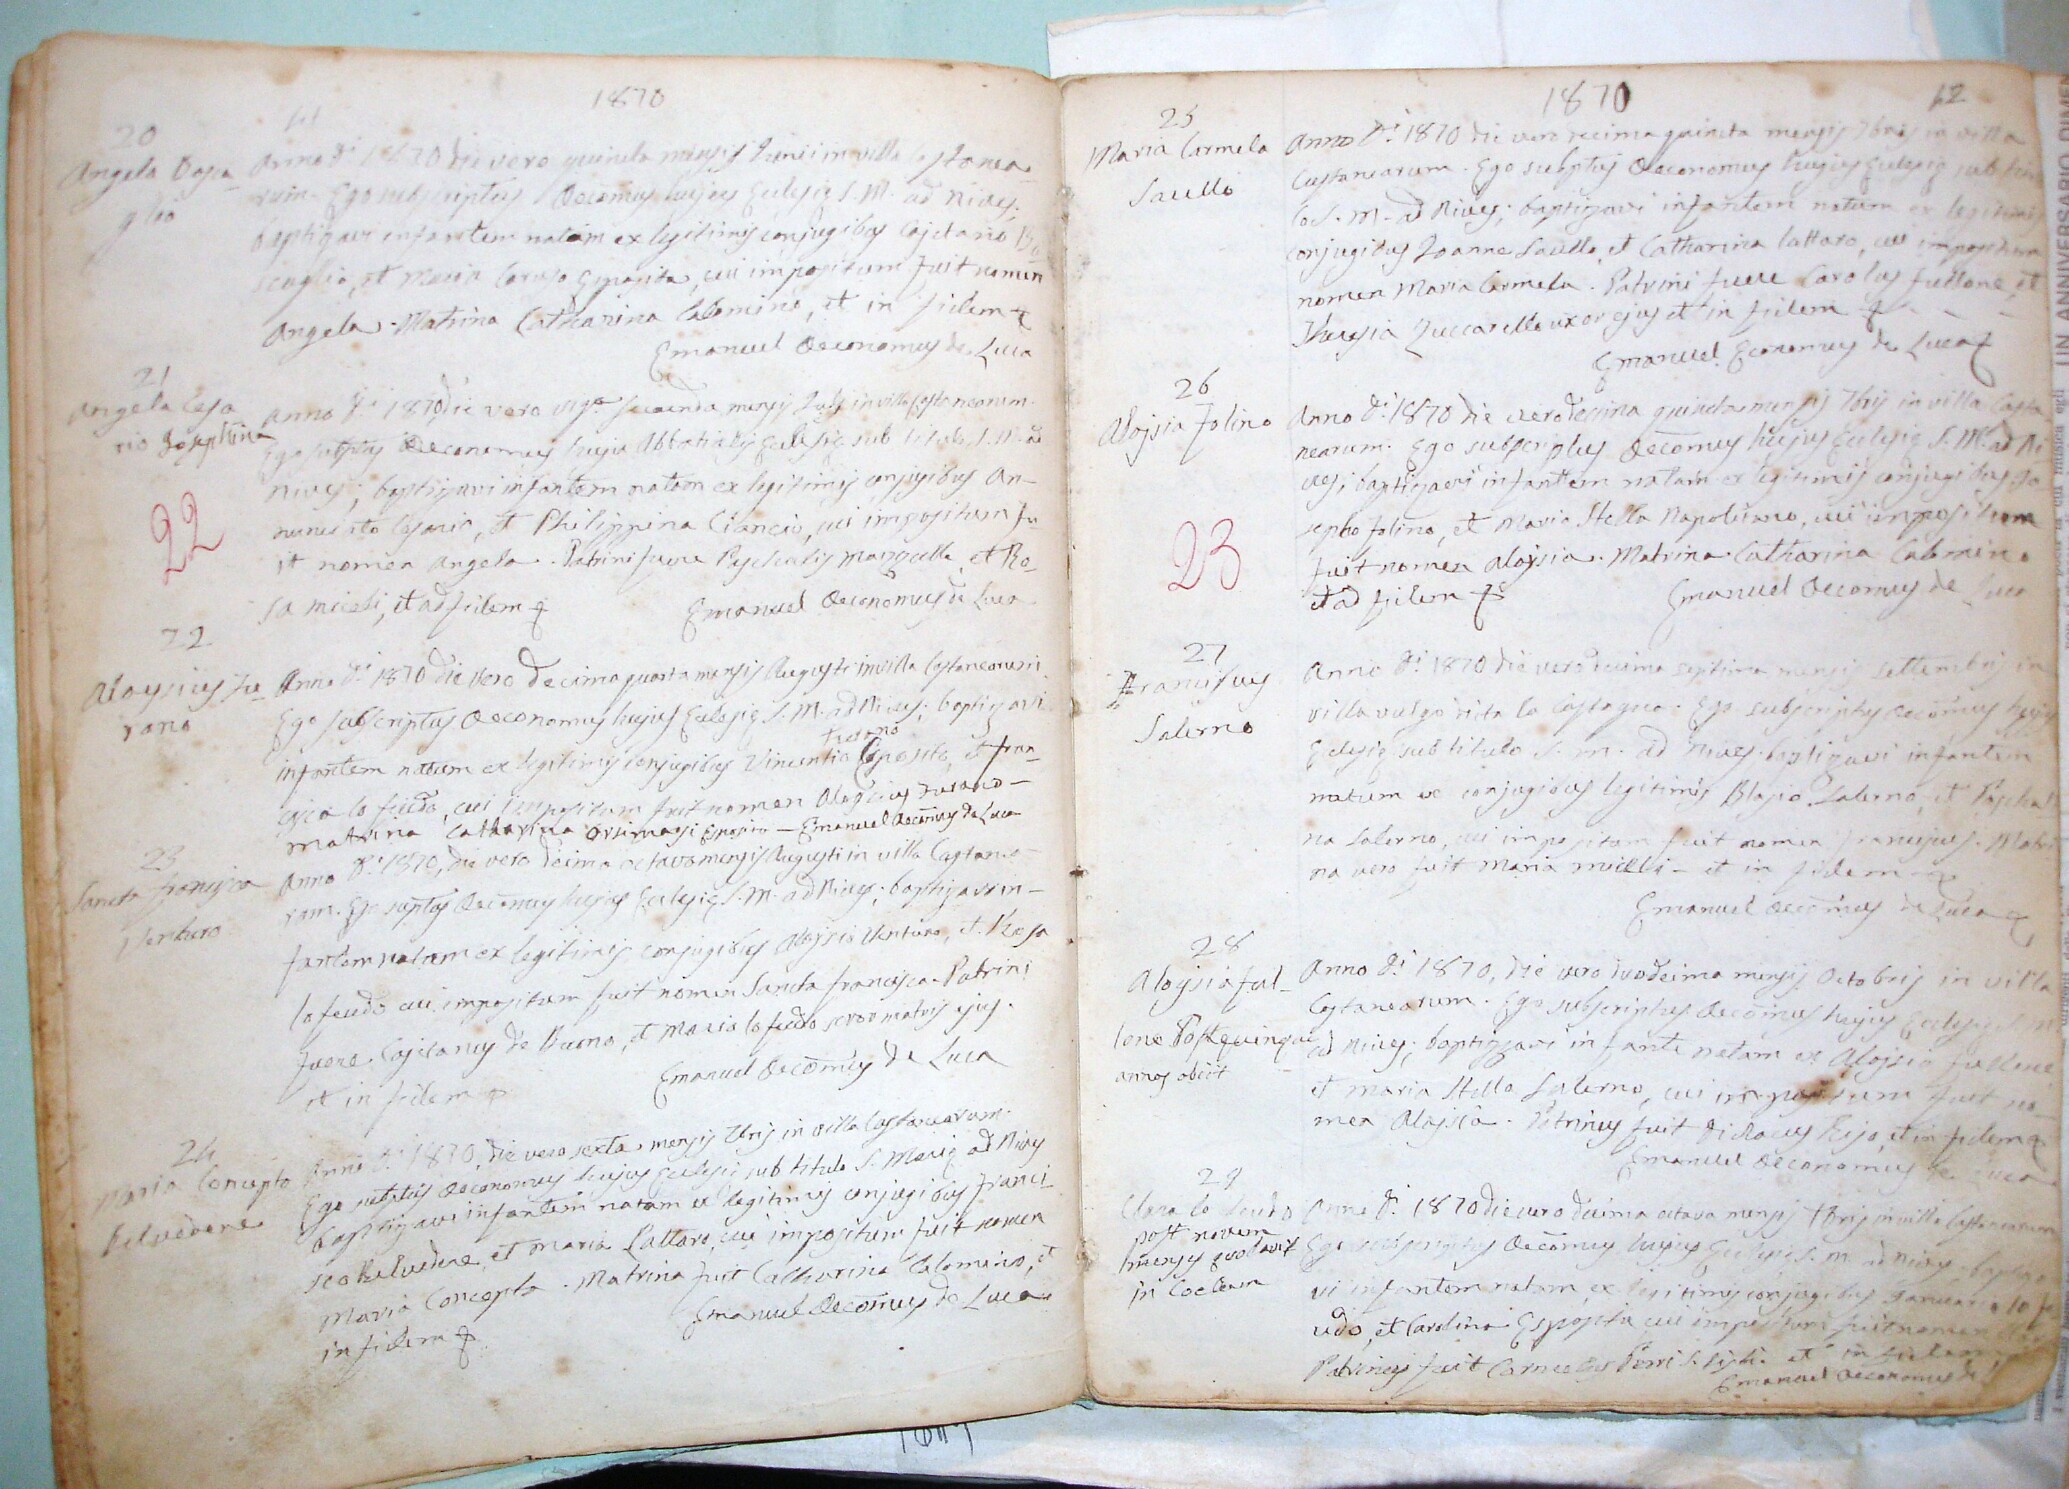 1870
20
Angela Bosca
glio
Anno D.i 1870 die vero quinta mensis Junii in villa Castanea
rum. Ego subscriptus Oecõmus hujus Eclesie S. M. ad Nives,
baptizavi infantem natam ex legitimis conjugibus Cajetano Bo
scaglio, et Maria Caruso Esposita, cui impositum fuit nomen
Angela. Matrina Catharina Colomino, et in fidem
Emanuel Oeconomus de Luca
21
Angela Cesa
rio Josephina
22
Anno D.i 1870, die vero vig.a secunda mensis Julij in villa Castanearum.
Ego subptus Oeconomus hujus Abbatialis Eclesie sub titulo S. M. ad
Nives, baptizavi infantem natam ex legitimis conjugibus An-
nunciato Cesario, et Philippina Ciancio, cui impositum fu
it nomen Angela. Patrini fuere Paschalis Marozella, et Ro-
sa Micieli, et ad fidem
Emanuel Oeconomus de Luca
22
Aloysius Tu
rano
Anno D.i 1870 die vero decima quarta mensis Augusti in villa Castanearum.
Ego subscriptus Oeconomus hujus Eclesie S. M. ad Nives, baptizavi
Turano
infantem natum ex legitimis conjugibus Vincentio Esposito, et Fran-
cisca lo Feudo, cui impositum fuit nomen Aloysius Turano-
matrina Catharina Orsimarsi Esposito - Emanuel Oecõmus de Luca
23
Sancta Francisca
Venturo
Anno D.i 1870, die vero decima octava mensis Augusti in villa Castane-
rum. Ego suptus Oecõmus hujus Eclesie S. M. ad Nives, baptizavi in-
fantem natam ex legitimis conjugibus Aloysio Venturo, et Rosa
lo feudo cui impositum fuit nomen Sancta Francisca. Patrini
fuere Cajetanus de Buono, et Maria lo feudo soror matris ejus.
et in fidem
Emanuel Oecõmus de Luca
24
Maria Concepta
Belvedere
Anno D.i 1870, die vero sexta mensis 7bris in villa Castanearum.
Ego subptus Oeconomus hujus Eclesie sub titulo S. Marie ad Nives
baptizavi infantem natam ex legitimis conjugibus Franci-
sco Belvedere, et Maria Lattaro, cui impositum fuit nomen
Maria Concepta. Matrina fuit Catharina Colomino, et
in fidem
Emanuel Oecõmus de Luca
1870
62
25
Maria Carmela
Saullo
Anno D.i 1870 die vero decima quincta mensis 7bris in villa
Castanearum. Ego subptus Oeconomus hujus Eclesie sub titu
lo S. M. ad Nives, baptizavi infantem natam ex legitimis
conjugibus Joanne Saullo, et Catharina Lattaro, cui impositum
nomen Maria Carmela. Patrini fuere Carolus Fullone, et
Theresia Zuccarello uxor ejus et in fidem
Emanuel Economus de Luca
26
Aloisia Folino
23
Anno D.i 1870 die vero decima quincta mensis 7bris in villa Casta
nearum. Ego subscriptus Oecõmus hujus Eclesie S. M. ad Ni
ves, baptizavi infantem natam ex legitimis conjugibus Jo-
sepho Folino, et Maria Stella Napolitano, cui impositum
fuit nomen Aloysia. Matrina Catharina Calomino
et ad fidem
Emanuel Oecomus de Luca
27
Franciscus
Salerno
Anno D.i 1870 die vero decima septima mensis Settembris in
villa vulgo dicta la Castagna. Ego subscriptus Oecõmus hujus
Eclesie sub titulo S. M. ad Nives baptizavi infantem
natum ex conjugibus legitimis Blasio Salerno, et Paschali
na Salerno, cui impositum fuit nomen Franciscus. Matri
na vero fuit Maria Micelli - et in fidem
Emanuel Oecõmus de Luca
28
Aloysia Ful-
lone Post quinque
annos obiit
Anno D.i 1870, die vero duodecima mensis Octobris in villa
Castanearum. Ego subscriptus Oecõmus hujus Eclesie S. M.
ad Nives, baptizavi infantẽ natam ex Aloysio Fullone
et Maria Stella Salerno, cui impositum fuit no-
men Aloysia. Patrinus fuit Didacus Rejo, et in fidem
Emanuel Oeconomus de Luca
29
Clara lo Feudo
post novem
menses evolavit
in Coelum
Anno D.i 1870 die vero decima octava mensis 8bris in villa Castanearum
Ego subscriptus Oecõmus hujus Eclesie S. M. ad Nives baptiza
vi infantem natam ex legitimis conjugibus Januario lo Fe
udo, et Carolina Esposita cui impositum fuit nomen
Patrinus fuit Carmelus Perri et in fidem
Emanuel Oeconomus de
UN ANNIVERSARIO